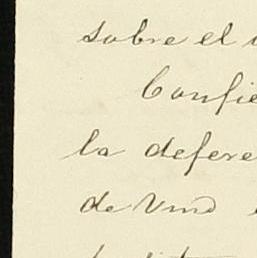 sobre el
Confie
la defere
de Vmd